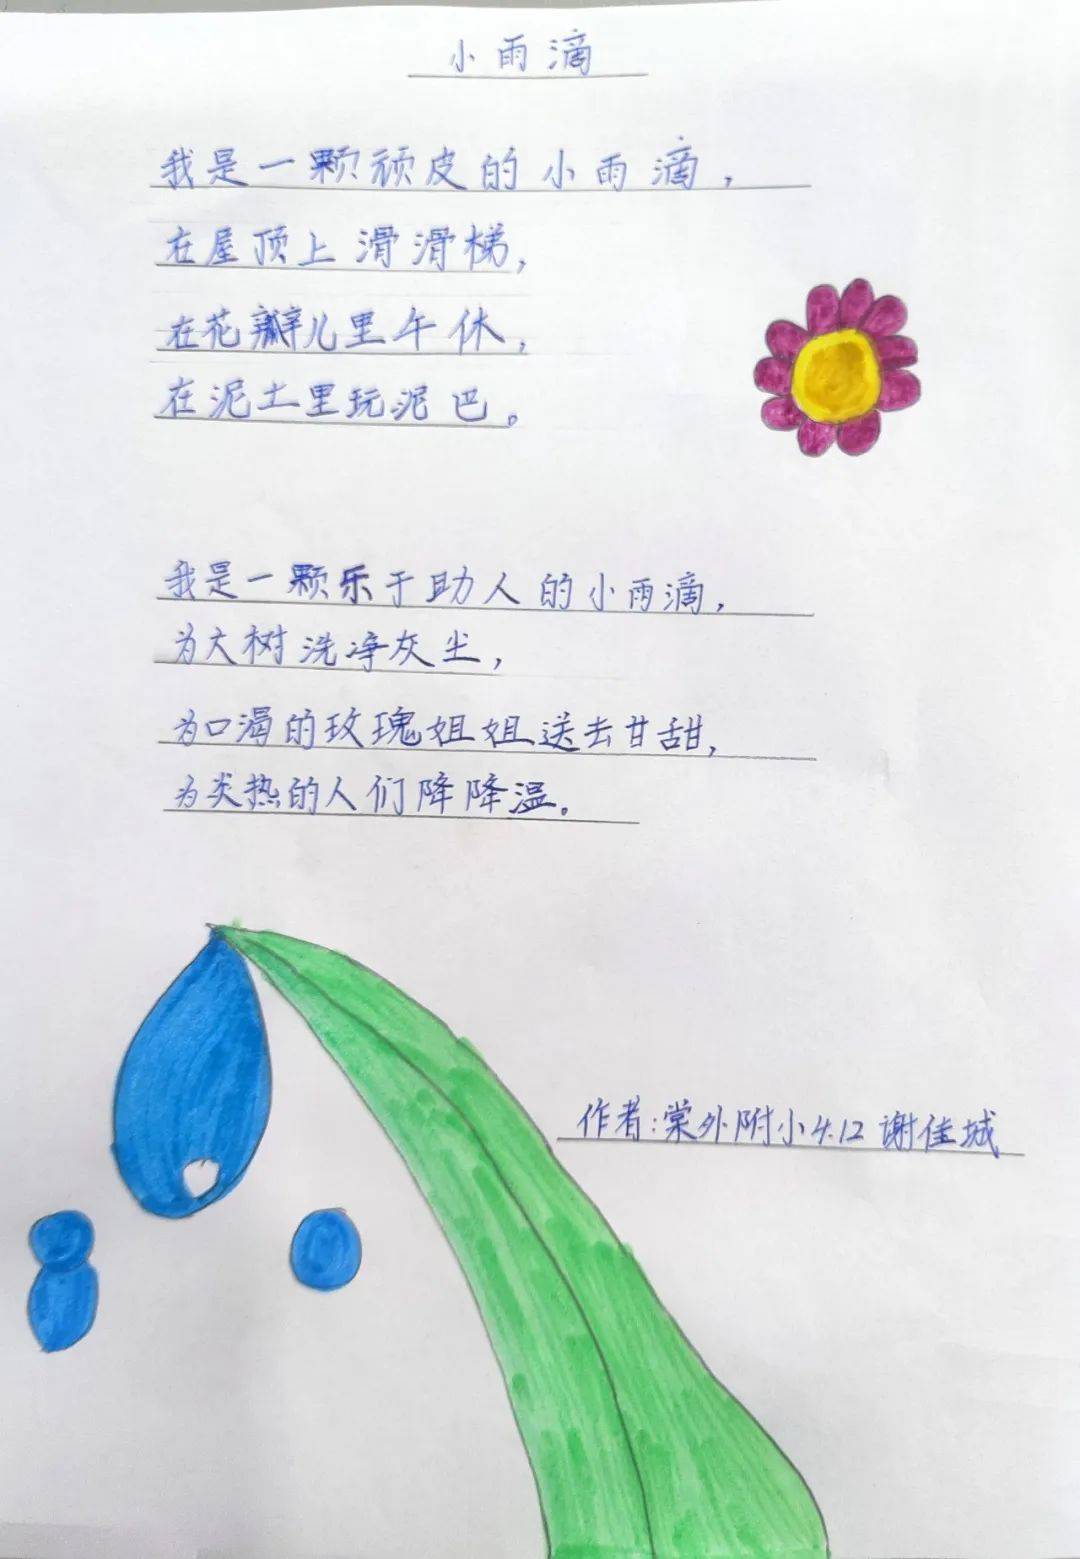 小雨滴
我是一颗顽皮的小雨滴，
在屋顶上滑滑梯，
在花瓣儿里午休，
在泥土里玩泥巴。
我是一颗乐于助人的小雨滴，
为大树洗净灰尘，
为口渴的玫瑰姐姐送去甘甜，
为炎热的人们降降温。
作者：棠外附小4.12谢佳城